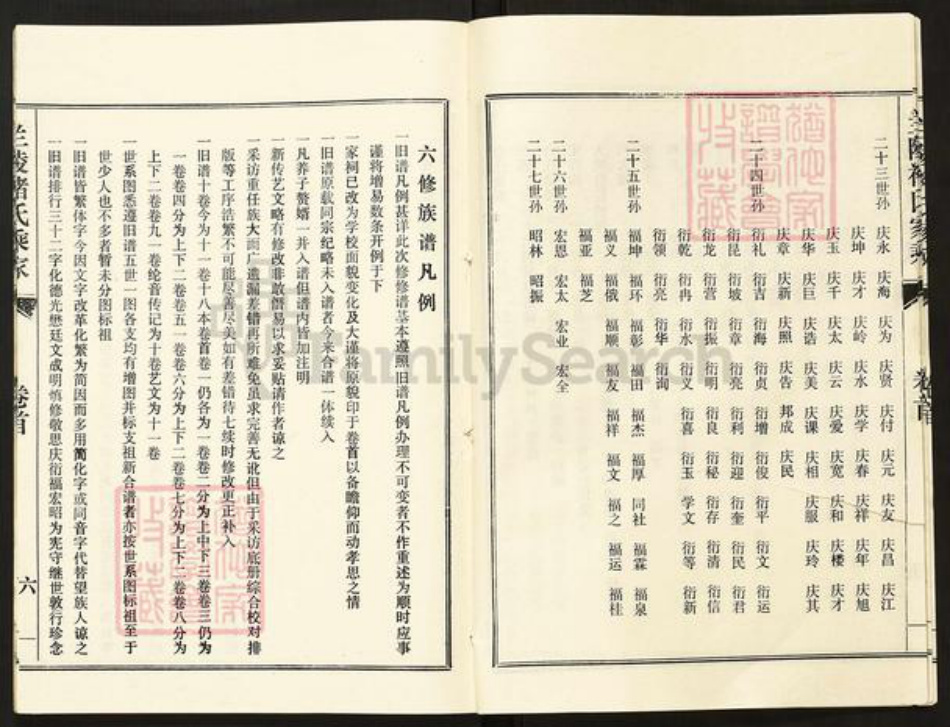 二十三世孙
庆永 庆海 庆为 庆贤 庆付 庆元 庆友 庆昌 庆江
庆坤 庆才 庆岭 庆水 庆学 庆春 庆祥 庆年 庆旭
庆玉 庆千 庆太 庆云 庆爱 庆宽 庆和 庆楼 庆才
庆华 庆巨 庆诰 庆美 庆课 庆相 庆服 庆玲 庆其
庆章 庆新 庆照 庆告 邦成 庆民
二十四世孙
衍礼 衍吉 衍海 衍贞 衍增 衍俊 衍平 衍文 衍运
衍昆 衍坡 衍章 衍亮 衍利 衍迎 衍奎 衍民 衍君
衍龙 衍营 衍振 衍明 衍良 衍秘 衍存 衍清 衍信
衍乾 衍冉 衍水 衍义 衍喜 衍玉 学文 衍等 衍新
衍领 衍亮 衍华 衍询
二十五世孙
福坤 福环 福彰 福田 福杰 福厚 同社 福霖 福泉
福义 福俄 福顺 福友 福祥 福文 福之 福运 福桂
福亚 福芝
二十六世孙
宏恩 宏太 宏业 宏全
二十七世孙
昭林 昭振
六修族谱凡例
一旧谱凡例甚详此次修修谱基本遵照旧谱凡例办理不可变者不作重述为顺时应事
谨将增易数条开例于下
一家祠已改为学校面貌变化及大谨将原貌印于卷首以备瞻仰而动孝思之情
一旧谱原载同宗纪略未入谱者今来合谱一体续入
一凡养子赘婿一并入谱但谱内皆加注明
一新传艺文略有修改非敢僭易以求妥贴请作者谅之
一采访重任族大而广遗漏差错再所难免虽求完善无讹但由于采访底册综合校对排
版等工序浩繁不可能尽善尽美如有差错待七续时修改更正补入
一旧谱十卷今为十一卷十八本卷首卷一仍各为一卷卷二分为上中下三卷卷三仍为
一卷卷四分为上下二卷卷五一卷卷六分为上下二卷卷七分为上下二卷卷八分为
上下二卷卷九一卷纶音传记为十卷艺文为十一卷
一世系图悉遵旧谱五世一图各支均有增图并标支祖新合谱者亦按世系图标祖至于
世少人也不多者暂未分图标祖
一旧谱皆繁体字今因文字改革化繁为简因而多用简化字或同音字代替望族人谅之
一旧谱排行三十二字化德光懋廷文成明慎修敬思庆衍福宏昭为宪守继世敦行珍念
卷首
六
FamilySearch